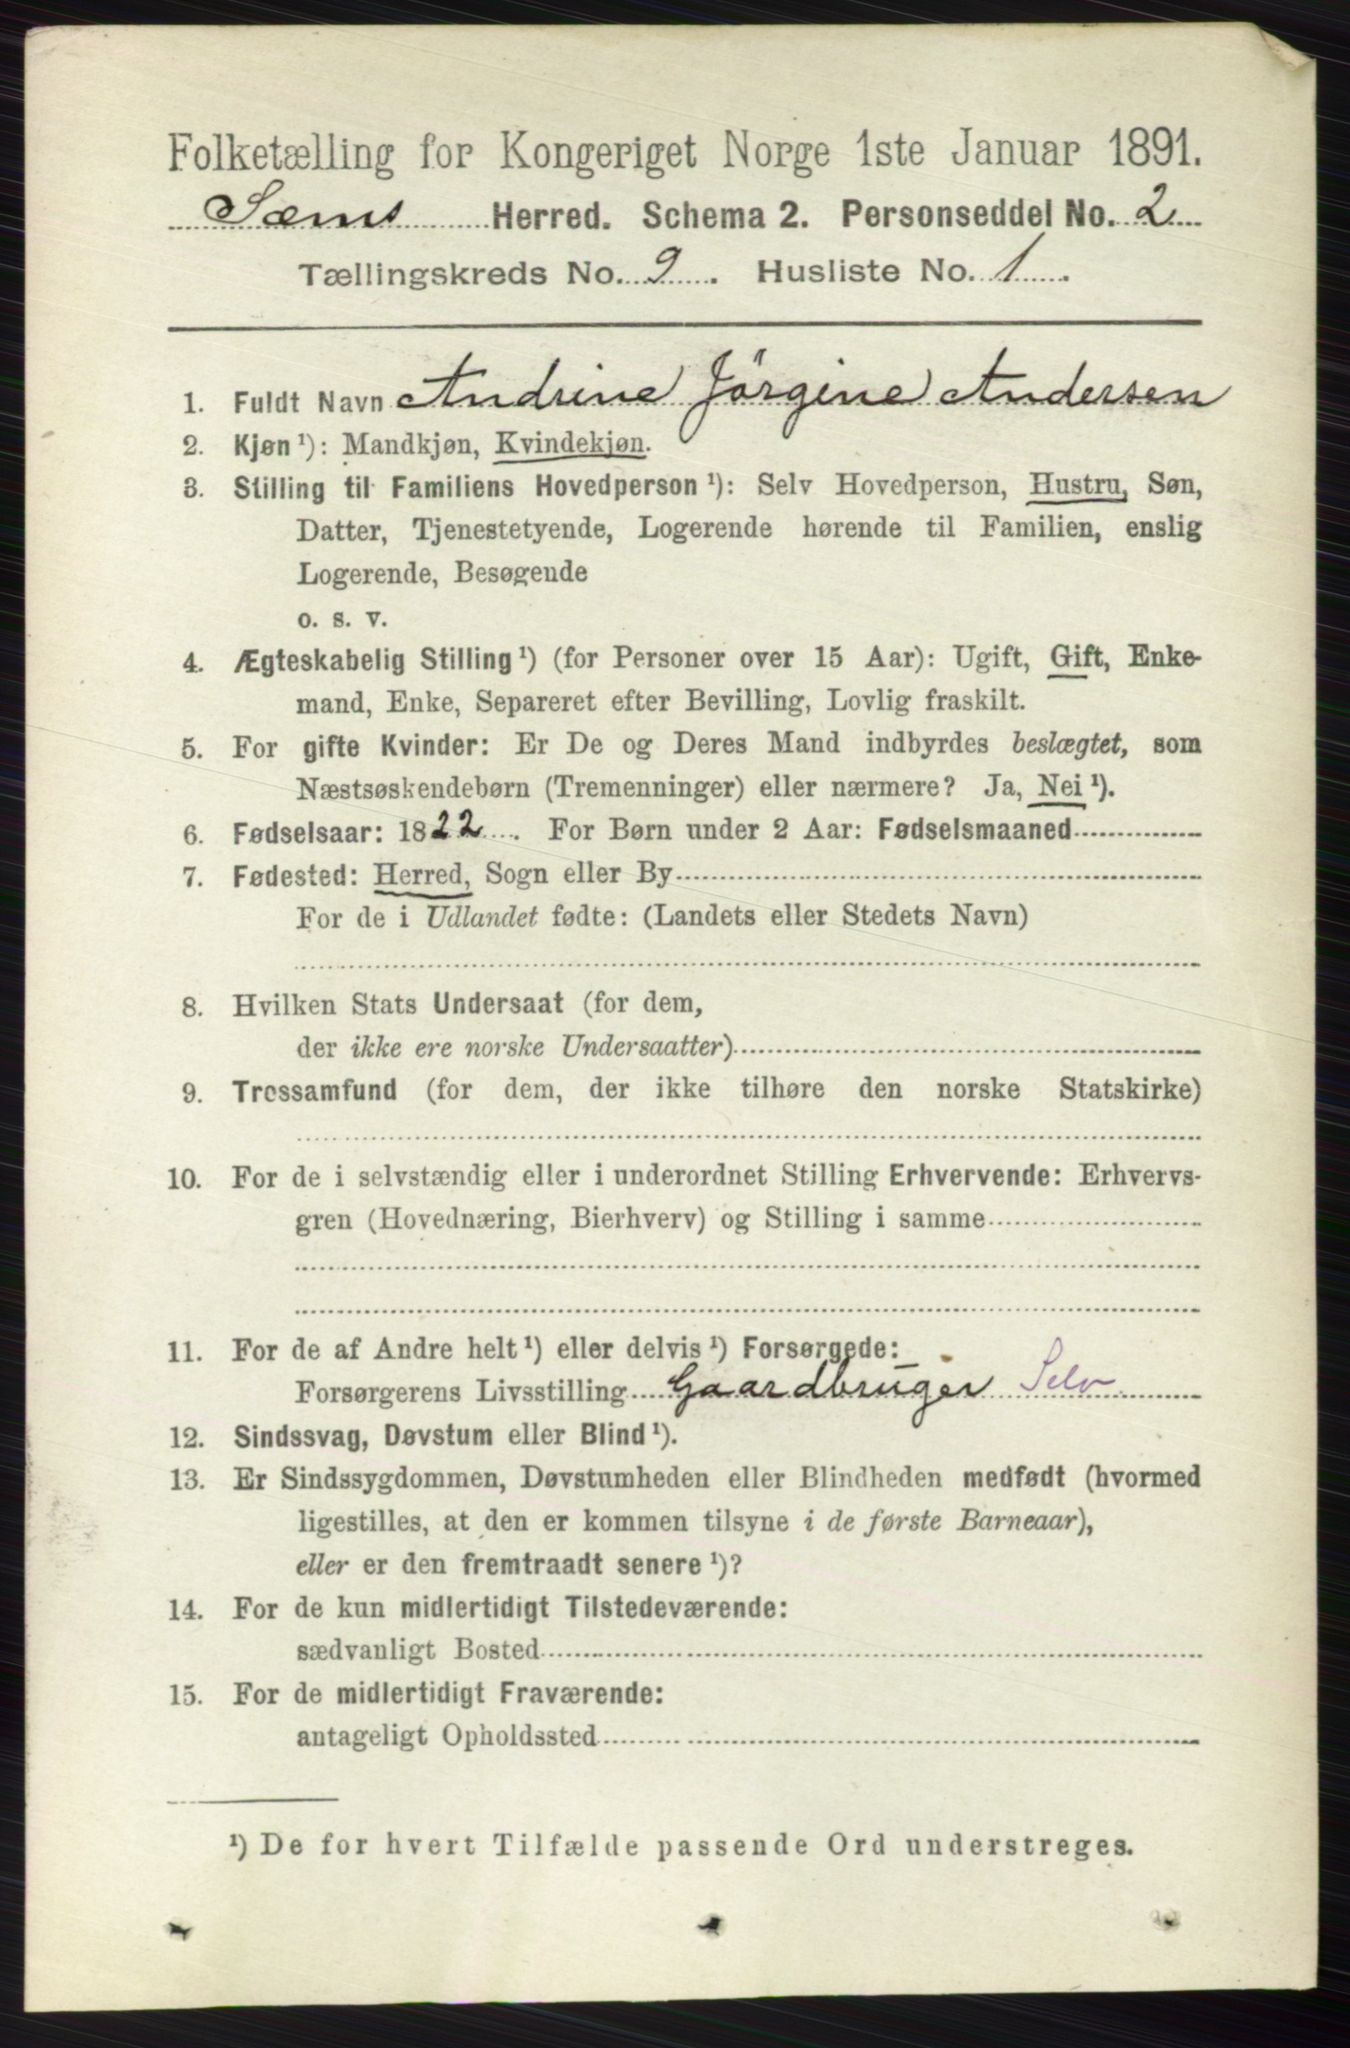 Folketælling for Kongeriget Norge 1ste Januar 1891.
Sæms Herred. Schema 2. Personseddel No. 2
Tællingskreds No. 9. Husliste No. 1.
1. Fuldt Navn Andrine Jörgine Andersen
2. Kjøn ¹): Mandkjøn, Kvindekjøn.
3. Stilling til Familiens Hovedperson ¹): Selv Hovedperson, Hustru, Søn,
Datter, Tjenestetyende, Logerende hørende til Familien, enslig
Logerende, Besøgende
o. s. v.
4. Ægteskabelig Stilling ¹) (for Personer over 15 Aar): Ugift, Gift, Enke-
mand, Enke, Separeret efter Bevilling, Lovlig fraskilt.
5. For gifte Kvinder: Er De og Deres Mand indbyrdes beslægtet, som
Næstsøskendebørn (Tremenninger) eller nærmere? Ja, Nei ¹).
6. Fødselsaar: 1822. For Børn under 2 Aar: Fødselsmaaned
7. Fødested: Herred, Sogn eller By
For de i Udlandet fødte: (Landets eller Stedets Navn)
8. Hvilken Stats Undersaat (for dem,
der ikke ere norske Undersaatter)
9. Trossamfund (for dem, der ikke tilhøre den norske Statskirke)
10. For de i selvstændig eller i underordnet Stilling Erhvervende: Erhvervs-
gren (Hovednæring, Bierhverv) og Stilling i samme
11. For de af Andre helt ¹) eller delvis ¹) Forsørgede:
Forsørgerens Livsstilling Gaardbruger Selv
12. Sindssvag, Døvstum eller Blind ¹).
13. Er Sindssygdommen, Døvstumheden eller Blindheden medfødt (hvormed
ligestilles, at den er kommen tilsyne i de første Barneaar),
eller er den fremtraadt senere ¹)?
14. For de kun midlertidigt Tilstedeværende:
sædvanligt Bosted
15. For de midlertidigt Fraværende:
antageligt Opholdssted
¹) De for hvert Tilfælde passende Ord understreges.